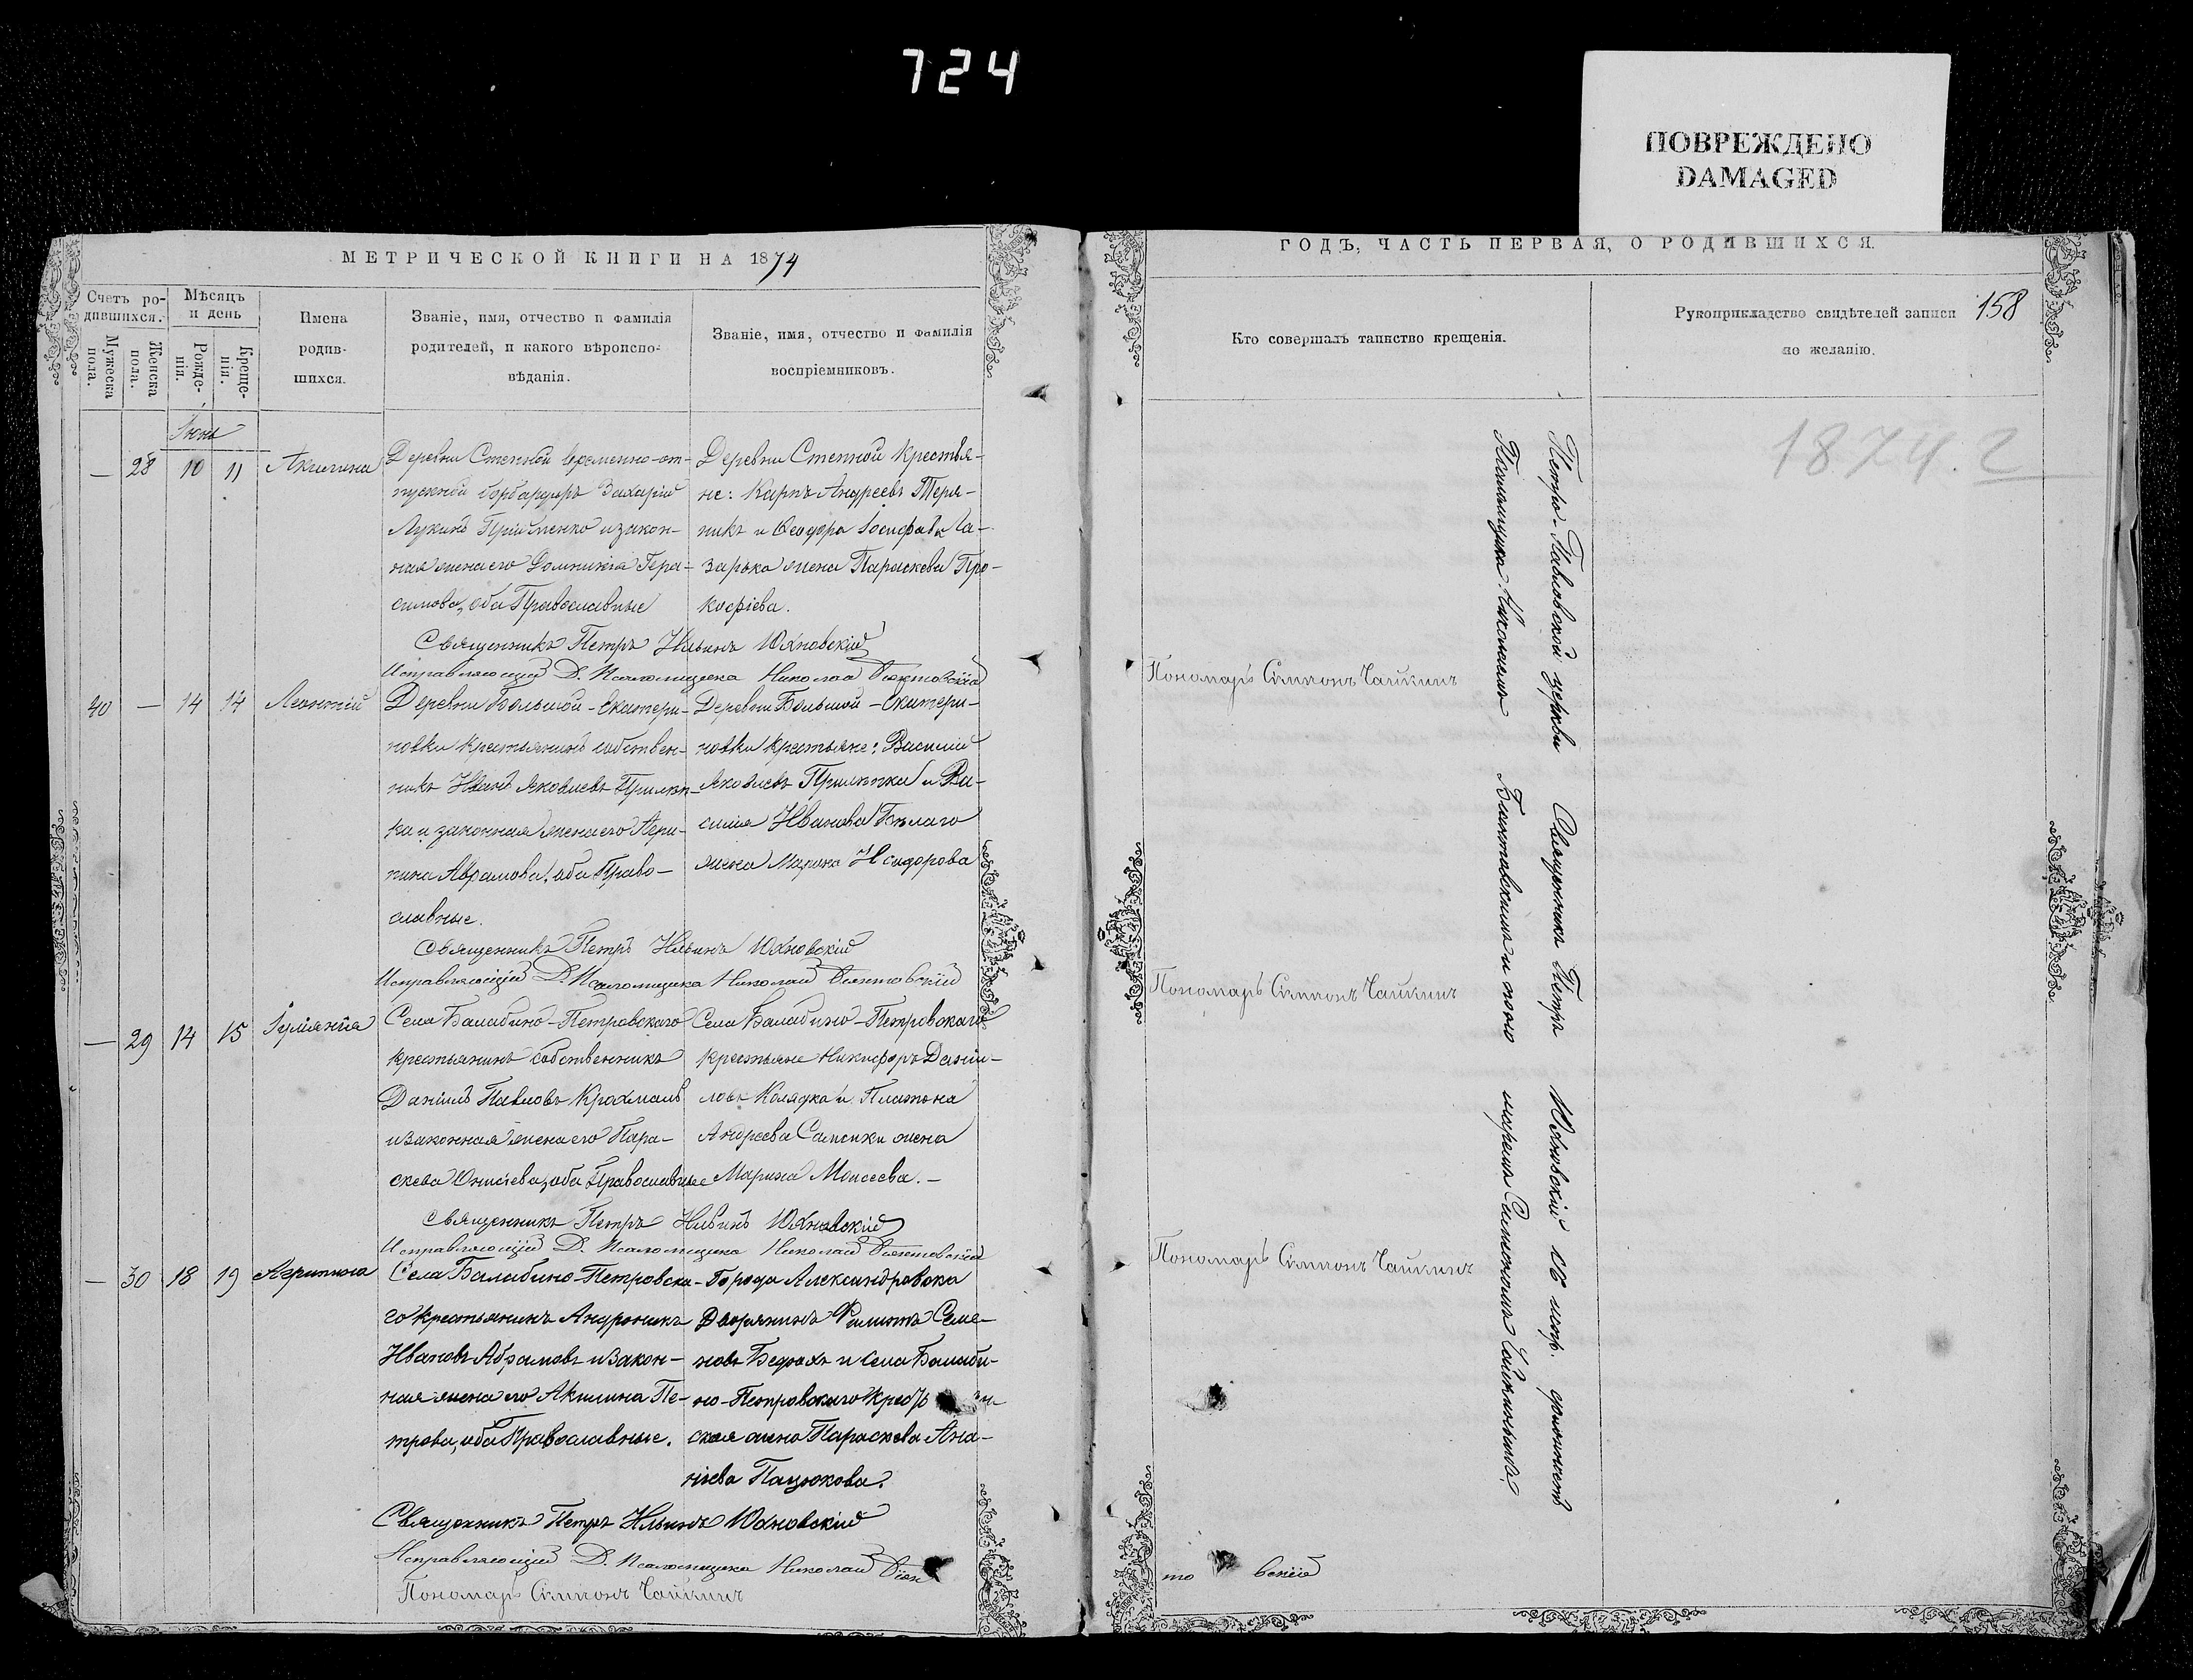 724
ПОВРЕЖДЕНО
DAMAGED
МЕТРИЧЕСКОЙ КНИГИ НА 1874
ГОДЪ, ЧАСТЬ ПЕРВАЯ, О РОДИВШИХСЯ.
158
Счетъ ро-
дившихся.
Мужеска
пола.
Женска
пола.
Мѣсяцъ
и день
Рожде-
нія.
Креще-
нія.
Имена
родив-
шихся.
Званіе, имя, отчество и фамилія
родителей, и какого вѣроиспо-
вѣданія.
Званіе, имя, отчество и фамилія
воспріемниковъ.
Кто совершалъ таинство крещенія.
Рукоприкладство свидѣтелей записи
по желанію.
1874.2
Іюнь
— 28 10 11 Акилина
Деревни Степной временно-от-
пускной бомбардиръ Захарій
Лукинъ Прійменко и закон-
ная жена его Домникія Гера-
симова, оба Православные
Деревни Степной крестья-
не: Карпъ Андреевъ Теря-
никъ и Ѳеодора Іосифова Ла-
зарька жена Параскева Про-
кофіева.
Священникъ Петръ Ильинъ Юхновскій
Исправляющій Д. Псаломщика Николай
Пономарь Сѵмеонъ Чайкинъ
40 — 14 14 Леонтій
Деревни Большой-Екатери-
новки крестьянинъ собствен-
никъ Иванъ Яковлевъ Прилѣп-
ка и законная жена его Агри-
пина Аврамова, оба Право-
славные.
Деревни Большой-Екатери-
новки крестьяне: Василій
Яковлевъ Прилѣпка и Ва-
силія Иванова Бѣлаго
жена Марина Исидорова
Священникъ Петръ Ильинъ Юхновскій
Исправляющій Д. Псаломщика Николай
Пономарь Сѵмеонъ Чайкинъ
— 29 14 15 Іуліанія
Села Балабино-Петровскаго
крестьянинъ собственникъ
Даніилъ Павловъ Крохмаль
и законная жена его Пара-
скева Онисіева, оба Православные
Села Балабино-Петровскаго
крестьяне Никифоръ Даніи-
ловъ Колядка и Платона
Андреева Самсики жена
Марина Моисеева.—
Священникъ Петръ Ильинъ Юхновскій
Исправляющій Д. Псаломщика Николай
Пономарь Сѵмеонъ Чайкинъ
— 30 18 19 Агрипина
Села Балабино-Петровска-
го крестьянинъ Андроникъ
Ивановъ Абрамовъ и закон-
ная жена его Акилина Пе-
трова, оба Православные.
Города Александровска
Дворянинъ Филиппъ Семе-
новъ и села Балаби-
но-Петровскаго
ская жена Параскева Ана-
ніева Пацюкова.
Священникъ Петръ Ильинъ Юхновскій
Исправляющій Д. Псаломщика Николай
Пономарь Сѵмеонъ Чайкинъ
Петро-Павловской церкви Священникъ Петръ Юхновскій съ испр. должность
Псаломщика Николаемъ и поно-
маремъ Сѵмеономъ Чайкинымъ.